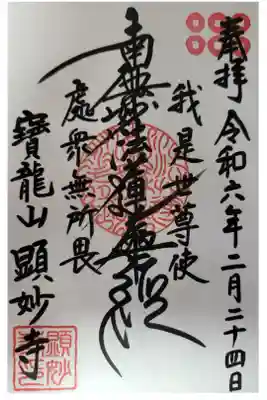 奉拝 令和六年二月二十四日
我是世尊使
南無妙法蓮華経
處衆無所畏
寳龍山 顕妙寺
顕妙